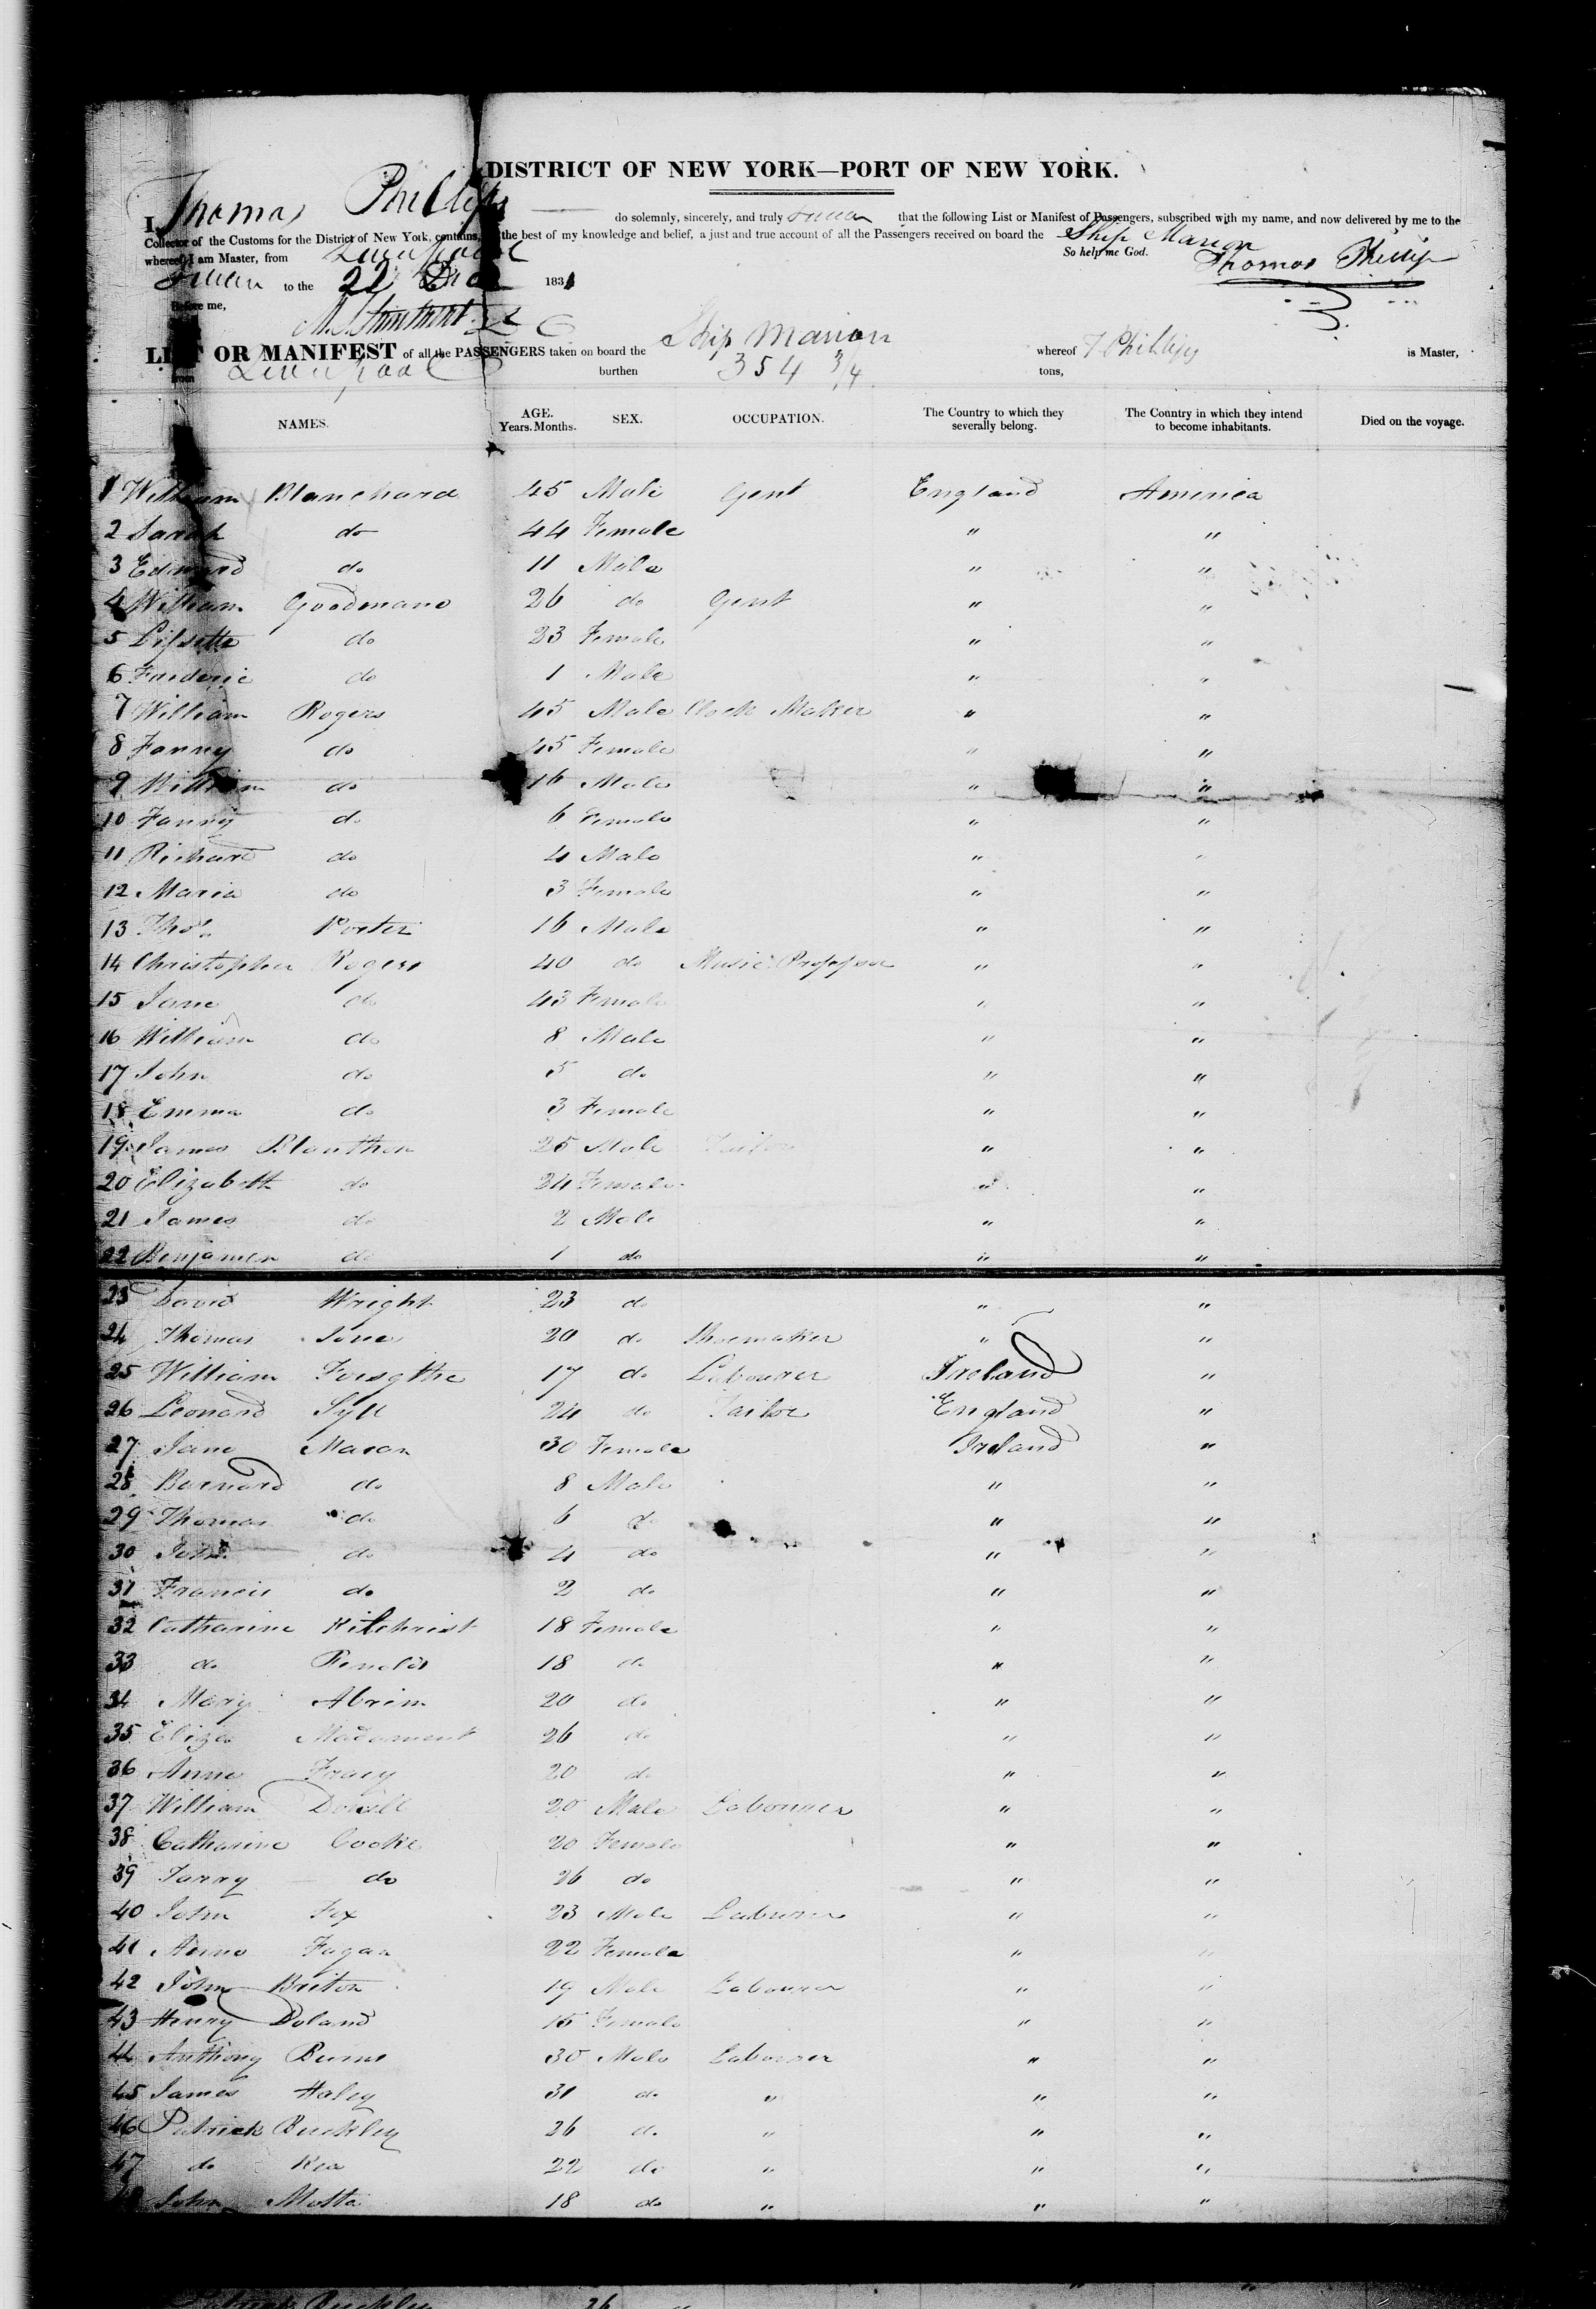 DISTRICT OF NEW YORK—PORT OF NEW YORK.
I, Thomas Phillips do solemnly, sincerely, and truly Swear that the following List or Manifest of Passengers, subscribed with my name, and now delivered by me to the
Collector of the Customs for the District of New York, contains, the best of my knowledge and belief, a just and true account of all the Passengers received on board the Ship Marion
whereof I am Master, from Liverpool So help me God. Thomas Phillips
Swear to the 22 183
Before me,
LIST OR MANIFEST of all the PASSENGERS taken on board the Ship Marion whereof T Phillips is Master,
from Liverpool burthen 354 3/4 tons,
NAMES. AGE. Years. Months. SEX. OCCUPATION. The Country to which they severally belong. The Country in which they intend to become inhabitants. Died on the voyage.
1 William Blanchard 45 Male Gent England America
2 Sarah do 44 Female " "
3 Edward do 11 Male " "
4 William Goodmano 26 do Gent " "
5 do 23 Female " "
6 Frederic do 1 Male " "
7 William Rogers 45 Male Clock Maker " "
8 Fanny do 45 Female " "
9 William do 16 Male " "
10 Fanny do 6 Female " "
11 Richard do 4 Male " "
12 Maria do 3 Female " "
13 Thos. Porter 16 Male " "
14 Christopher Rogers 40 do Music Professor " "
15 Jane do 43 Female " "
16 William do 8 Male " "
17 John do 5 do " "
18 Emma do 3 Female " "
19 James Blanthen 25 Male Tailor " "
20 Elizabeth do 24 Female " "
21 James do 2 Male " "
22 Benjamen do 1 do " "
23 David Wright 23 do " "
24 Thomas 20 do Shoemaker " "
25 William Forsythe 17 do Labourer Ireland "
26 Leonard 24 do Tailor England "
27 Jane Mason 30 Female Ireland "
28 Barnard do 8 Male " "
29 Thomas do 6 do " "
30 John do 4 do " "
31 Francis do 2 do " "
32 Catharine Kilchrist 18 Female " "
33 do 18 do " "
34 Mary Abrim 20 do " "
35 Eliza 26 do " "
36 Anne Tracy 20 do " "
37 William 20 Male Labourer " "
38 Catharine Cooke 20 Female " "
39 Fanny do 26 do " "
40 John Fox 23 Male Labourer " "
41 Anne Fagan 22 Female " "
42 John Briton 19 Male Labourer " "
43 Henry Doland 15 Female " "
44 Anthony Burns 30 Male Labourer " "
45 James Haley 31 do " " "
46 Patrick Buckley 26 do " " "
47 do Rea 22 do " " "
48 John Motta 18 do " " "
Patrick Buckley 26 " "